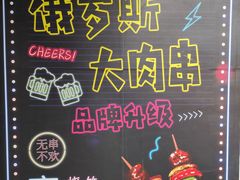 俄罗斯
CHEERS!
大肉串
品牌升级
无串
不欢